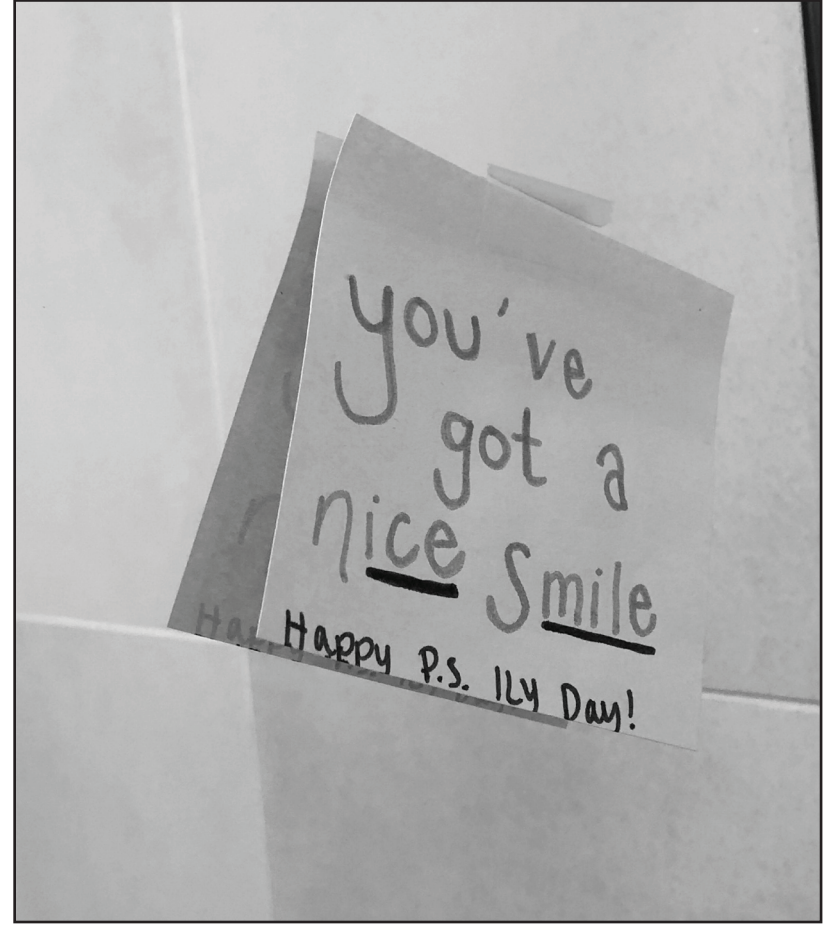 you've
got a
nice smile
Happy P.S. ILY Day!
Ha